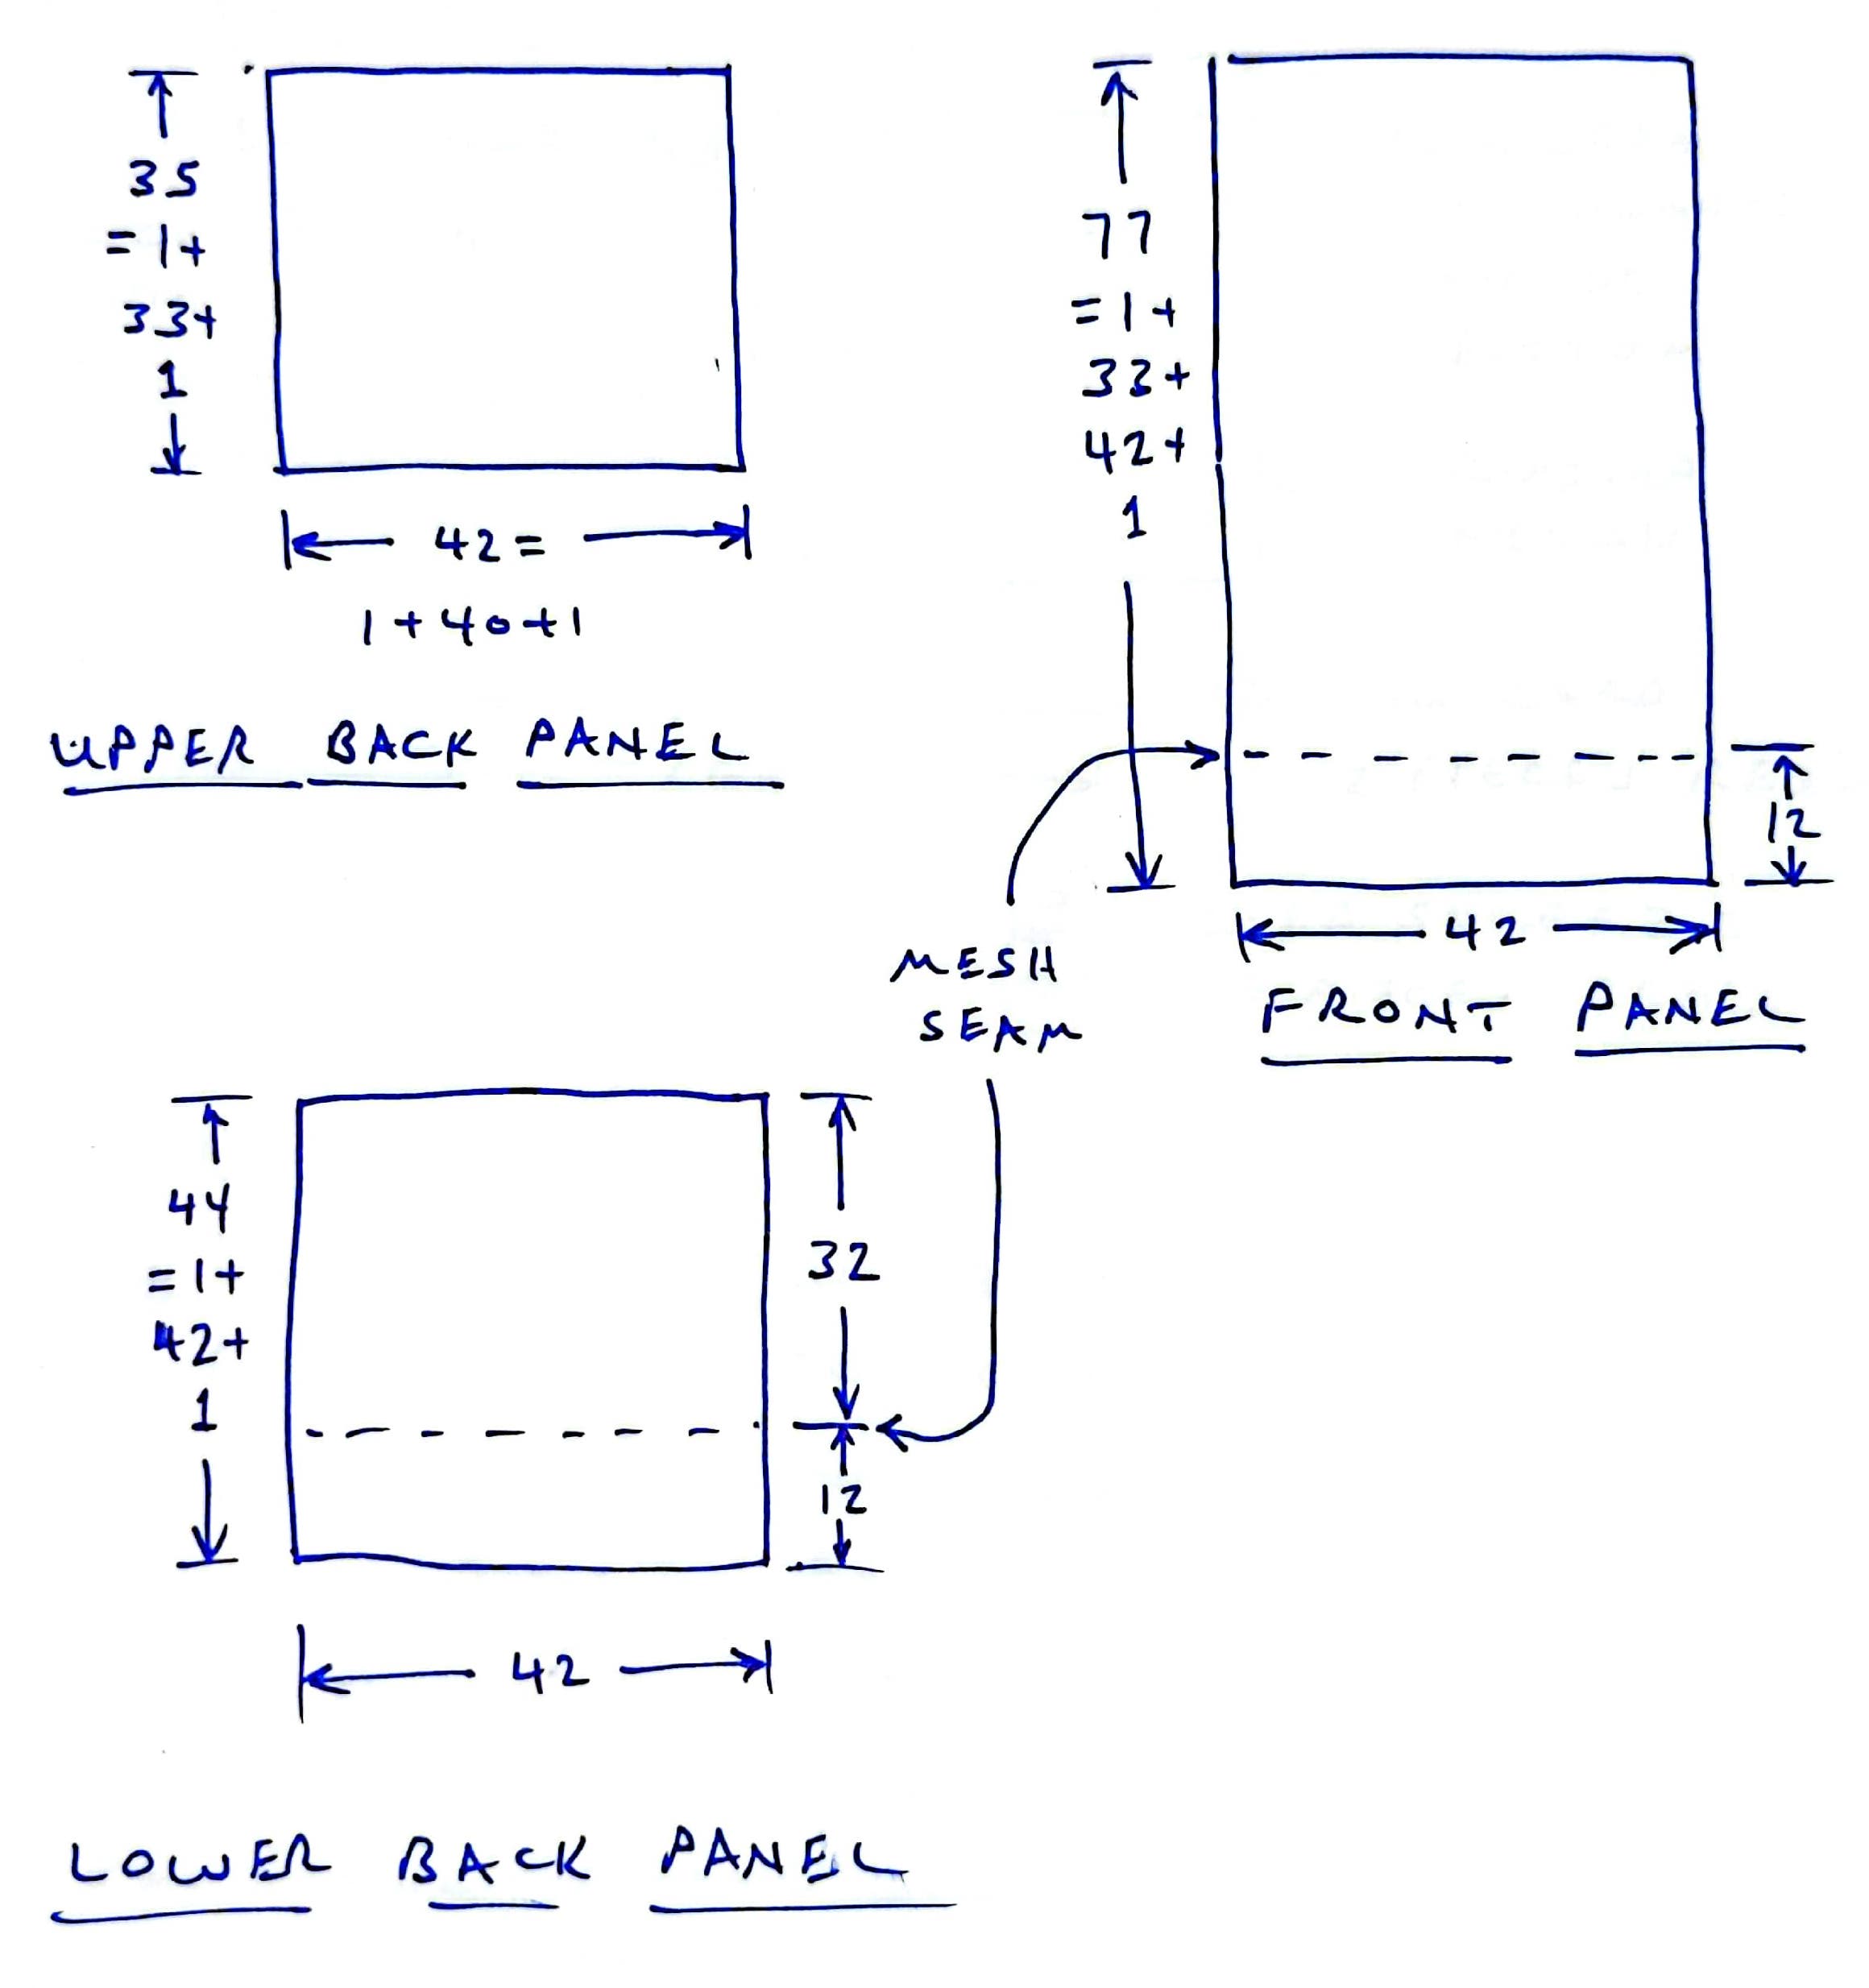 35
= 1 +
33 +
1
42 =
1 + 40 + 1
UPPER BACK PANEL
77
= 1 +
33 +
42 +
1
12
42
FRONT PANEL
MESH
SEAM
44
= 1 +
42 +
1
32
12
42
LOWER BACK PANEL